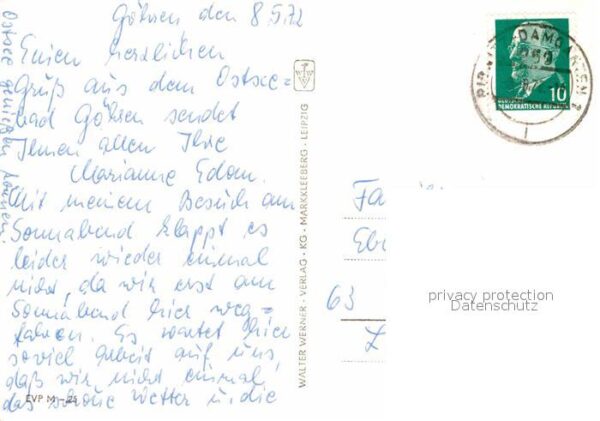 Göhren den 8.5.72
Einen herzlichen
Gruß aus dem Ostsee=
bad Göhren sendet
Ihnen allen Ihre
Marianne Edom.
Mit meinem Besuch am
Sonnabend klappt es
leider wieder einmal
nicht, da wir erst am
Sonnabend hier weg=
fahren. Es wartet hier
soviel Arbeit auf uns,
daß wir nicht einmal
das schöne Wetter u. die
Ostsee genießen können.
EVP M -,25
WALTER WERNER · VERLAG · KG · MARKKLEEBERG - LEIPZIG
10
DEUTSCHE
DEMOKRATISCHE REPUBLIK
Fa
Ebe
63
privacy protection
Datenschutz